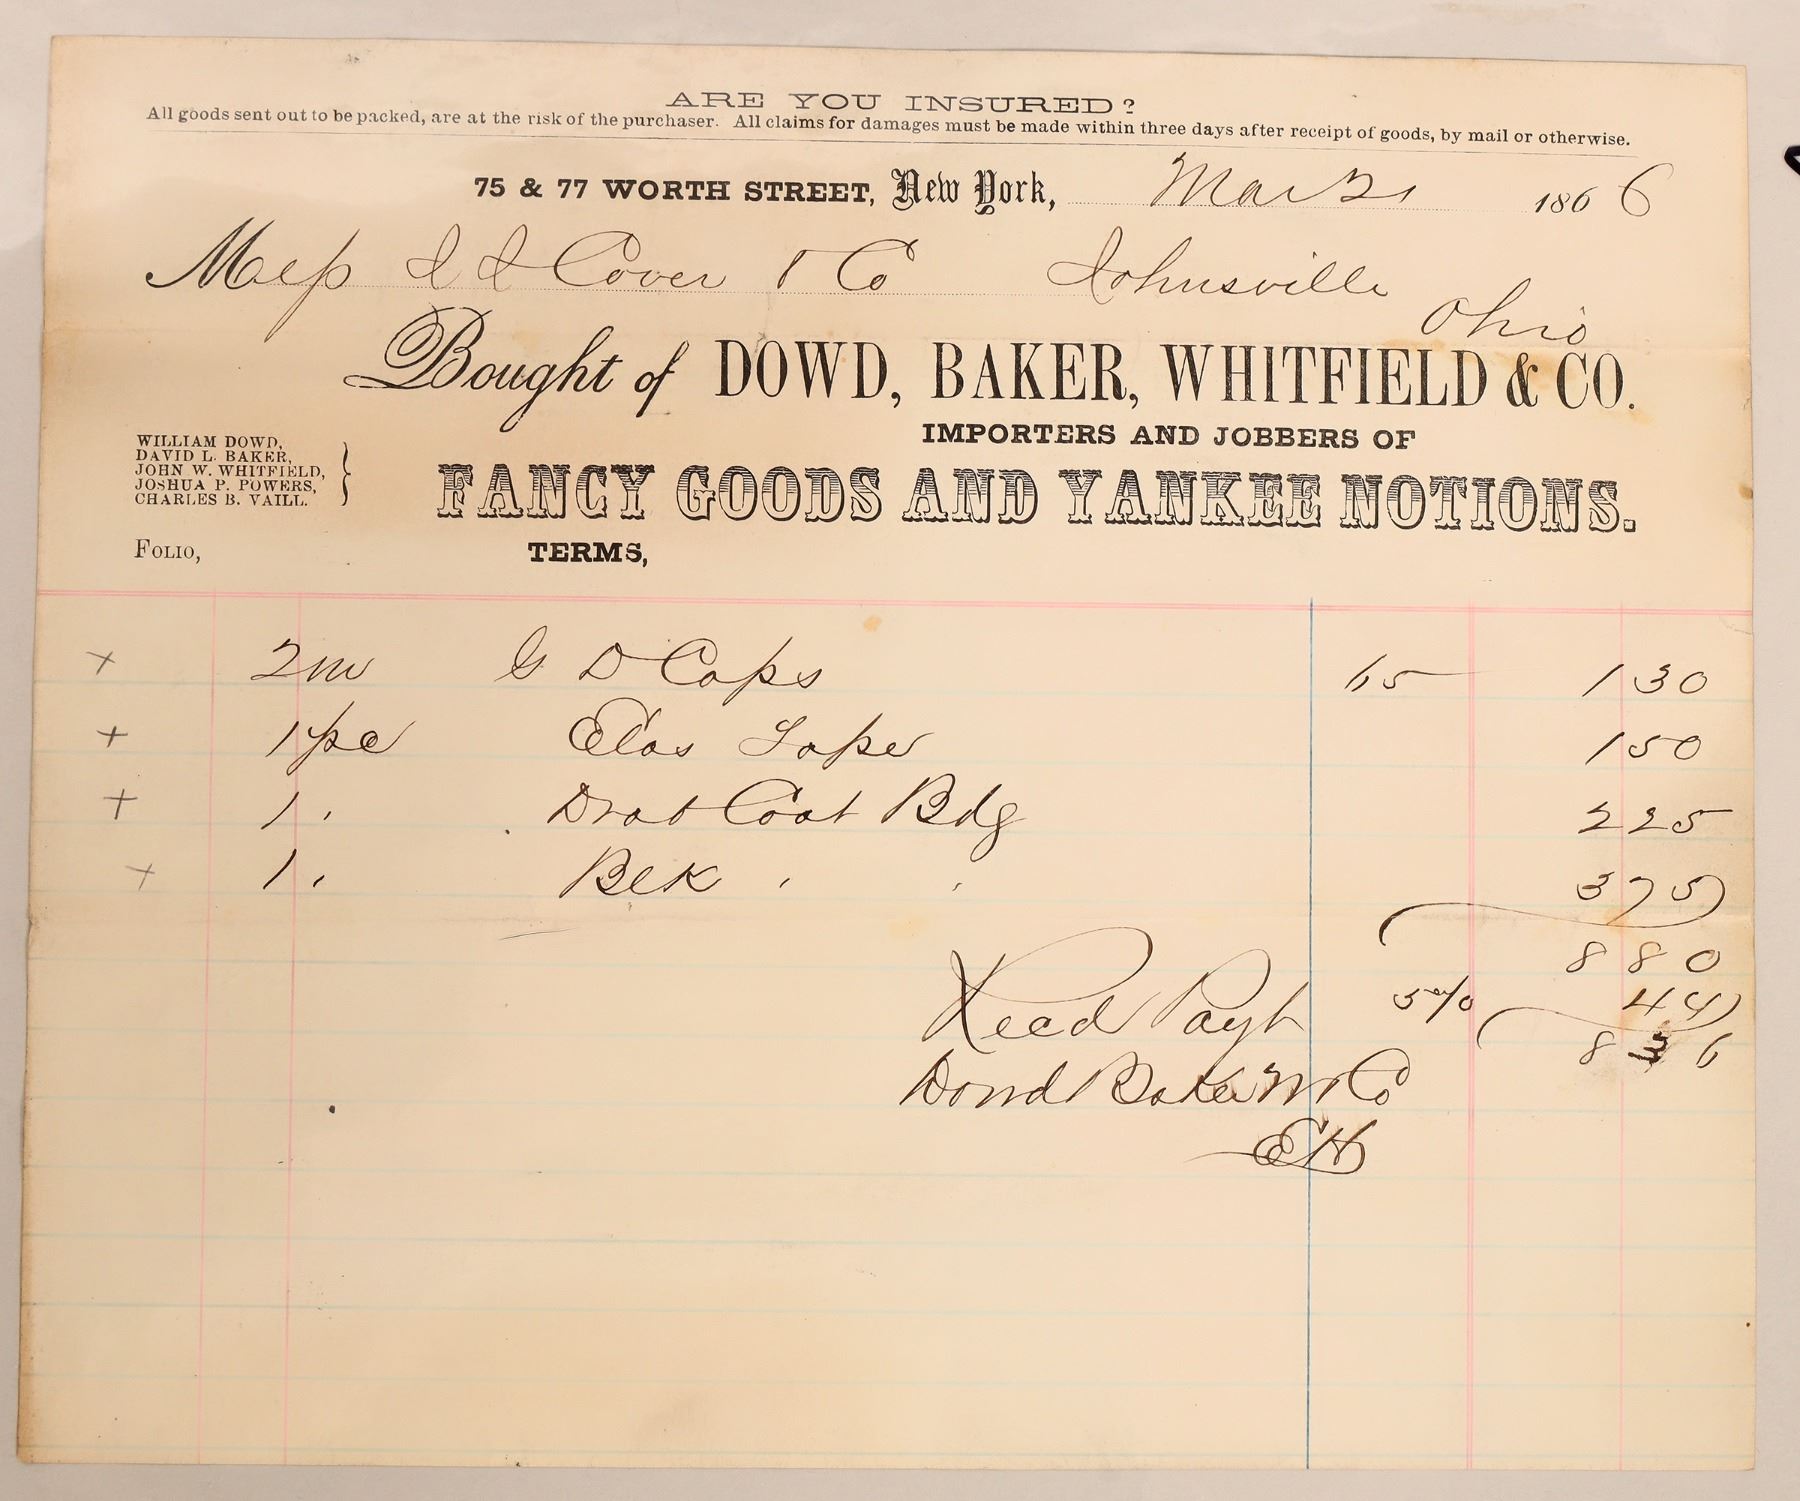 ARE YOU INSURED?
All goods sent out to be packed, are at the risk of the purchaser. All claims for damages must be made within three days after receipt of goods, by mail or otherwise.
75 & 77 WORTH STREET, New York, Mar 21 1866
Mess J J Cover & Co Johnsville Ohio
Bought of DOWD, BAKER, WHITFIELD & CO.
IMPORTERS AND JOBBERS OF
FANCY GOODS AND YANKEE NOTIONS.
WILLIAM DOWD,
DAVID L. BAKER,
JOHN W. WHITFIELD,
JOSHUA P. POWERS,
CHARLES B. VAILL.
FOLIO, TERMS,
+ 2 m G D Caps 65 1 30
+ 1 pc Elas Tape 1 50
+ 1 " Drab Coat Bdg 2 25
+ 1 " Blk " " 3 75
8 80
5 % 44
8 6
Recd Payt
Dowd Baker W & Co
EH